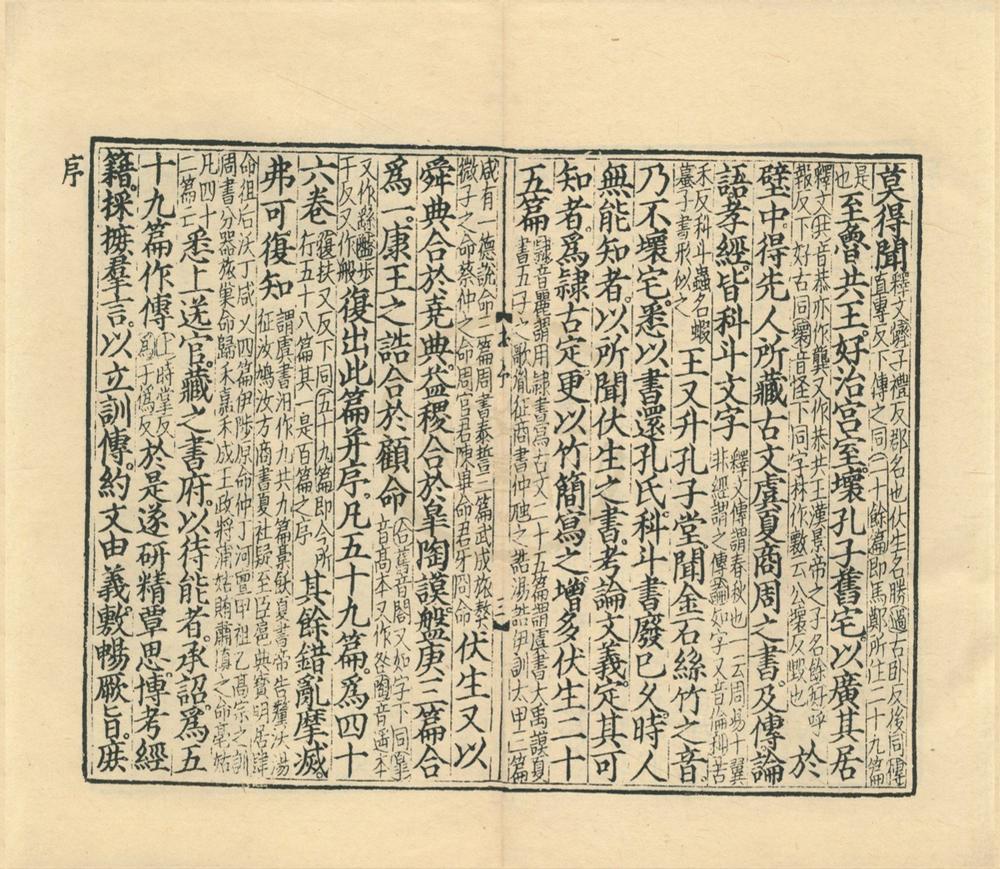 莫得聞
釋文濟子禮反郡名也伏生名勝過古卧反後同傳
直專反下傳之同二十餘篇即馬鄭所注二十九篇
是
也
至魯共王好治宮室壞孔子舊宅以廣其居
釋文共音恭亦作龔又作恭共王漢景帝之子名餘好呼
報反下好古同壞音怪下同字林作云公壞反毀也
於
壁中得先人所藏古文虞夏商周之書及傳論
語孝經皆科斗文字
釋文傳謂春秋也一云周易十翼
非經謂之傳論如字又音倫科苦
禾反科斗蟲名蝦
蟇子書形似之
王又升孔子堂聞金石絲竹之音
乃不壞宅悉以書還孔氏科斗書廢已久時人
無能知者以所聞伏生之書考論文義定其可
知者爲隷古定更以竹簡寫之增多伏生二十
五篇
隷音麗謂用隷書寫古文二十五篇謂虞書大禹謨夏
書五子之歌胤征商書仲虺之誥湯誥伊訓太甲三篇
序
三
咸有一德說命三篇周書泰誓三篇武成旅獒
微子之命蔡仲之命周官君陳畢命君牙冏命
伏生又以
舜典合於堯典益稷合於皐陶謨盤庚三篇合
爲一康王之誥合於顧命
合舊音閤又如字下同皐
音高本又作咎陶音遥本
又作繇盤步
干反又作般
復出此篇并序凡五十九篇爲四十
六卷
復扶又反下同五十九篇即今所
行五十八篇其一是百篇之序
其餘錯亂摩滅
弗可復知
謂虞書汨作九共九篇槀飫夏書帝告釐沃湯
征汝鳩汝方商書夏社疑至臣扈典寶明居肆
命徂后沃丁咸乂四篇伊陟原命仲丁河亶甲祖乙高宗之訓
周書分器旅巢命歸禾嘉禾成王政將蒲姑賄肅慎之命亳姑
凡四十
二篇亡
悉上送官藏之書府以待能者承詔爲五
十九篇作傳
上時掌反
爲于僞反
於是遂研精覃思博考經
籍採摭羣言以立訓傳約文由義敷暢厥旨庶
序